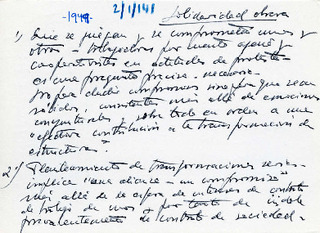 -1949- 2/1/141 Solidaridad obrera
1) Que se juegan y se comprometan unos y
otros - trabajadores por cuenta ajena y
cooperativistas en actitudes de protesta
es una pregunta precisa - necesaria
compromisos sino por que sean
sólidos, consistentes más allá de emociones
coyunturales y sobre todo en orden a una
efectiva contribución a la transformación de
estructuras?
2º) Planteamiento de transformaciones
implica "una alianza - un compromiso"
más allá de la esfera de intereses de contrato
de trabajo de unos y por tanto de índole
de contrato de sociedad -